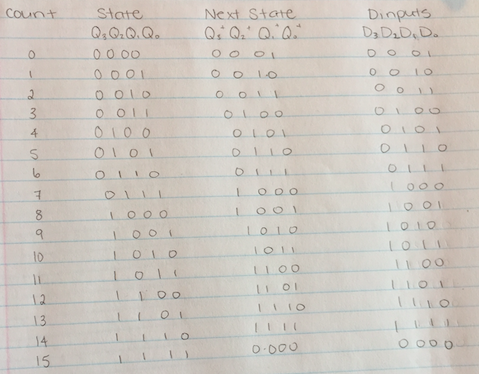 Count State Next State Dinputs
Q₃Q₂Q₁Q₀ Q₃⁺Q₂⁺Q₁⁺Q₀⁺ D₃D₂D₁D₀
0 0000 0001 0001
1 0001 0010 0010
2 0010 0011 0011
3 0011 0100 0100
4 0100 0101 0101
5 0101 0110 0110
6 0110 0111 0111
7 0111 1000 1000
8 1000 1001 1001
9 1001 1010 1010
10 1010 1011 1011
11 1011 1100 1100
12 1100 1101 1101
13 1101 1110 1110
14 1110 1111 1111
15 1111 0000 0000